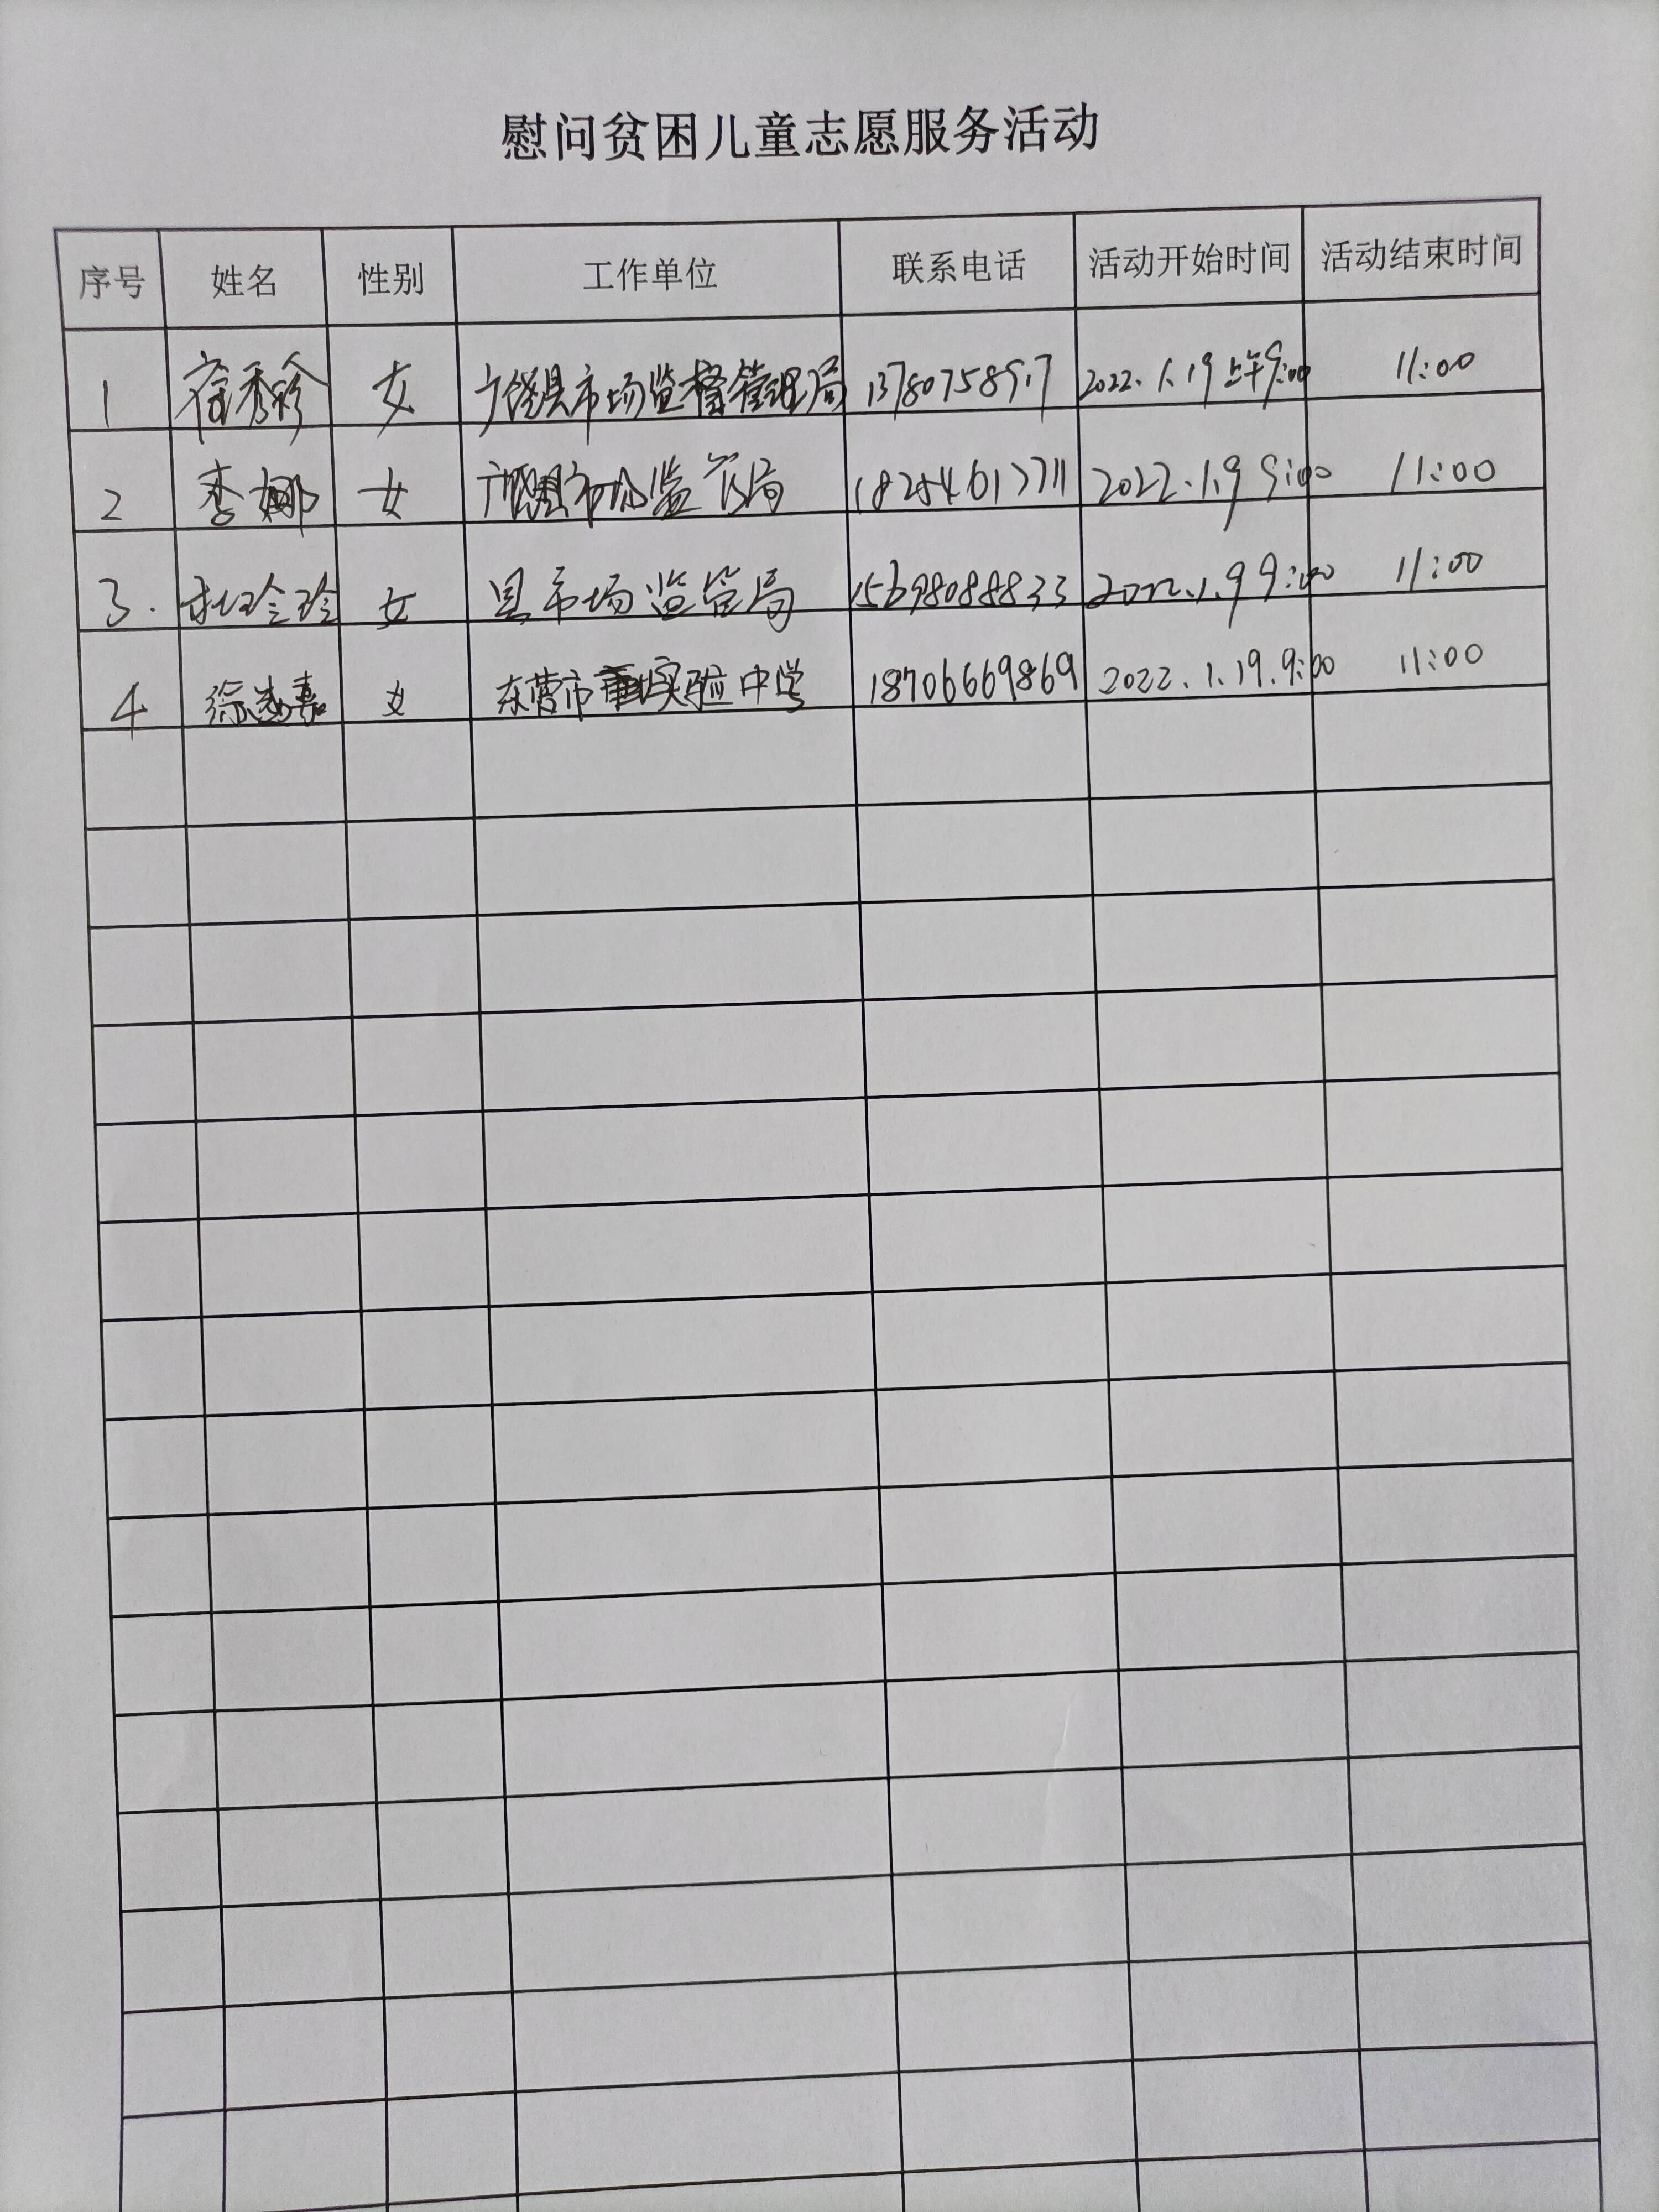 慰问贫困儿童志愿服务活动
序号 姓名 性别 工作单位 联系电话 活动开始时间 活动结束时间
1 秀珍 女 广饶县市场监督管理局 2022.1.19 上午9:00 11:00
2 李娜 女 广饶县市场监管局 2022.1.9 9:00 11:00
3. 杜玲玲 女 县市场监管局 15698088833 2022.1.9 9:00 11:00
4 徐嘉 女 东营市实验中学 18706669869 2022.1.19.9:00 11:00